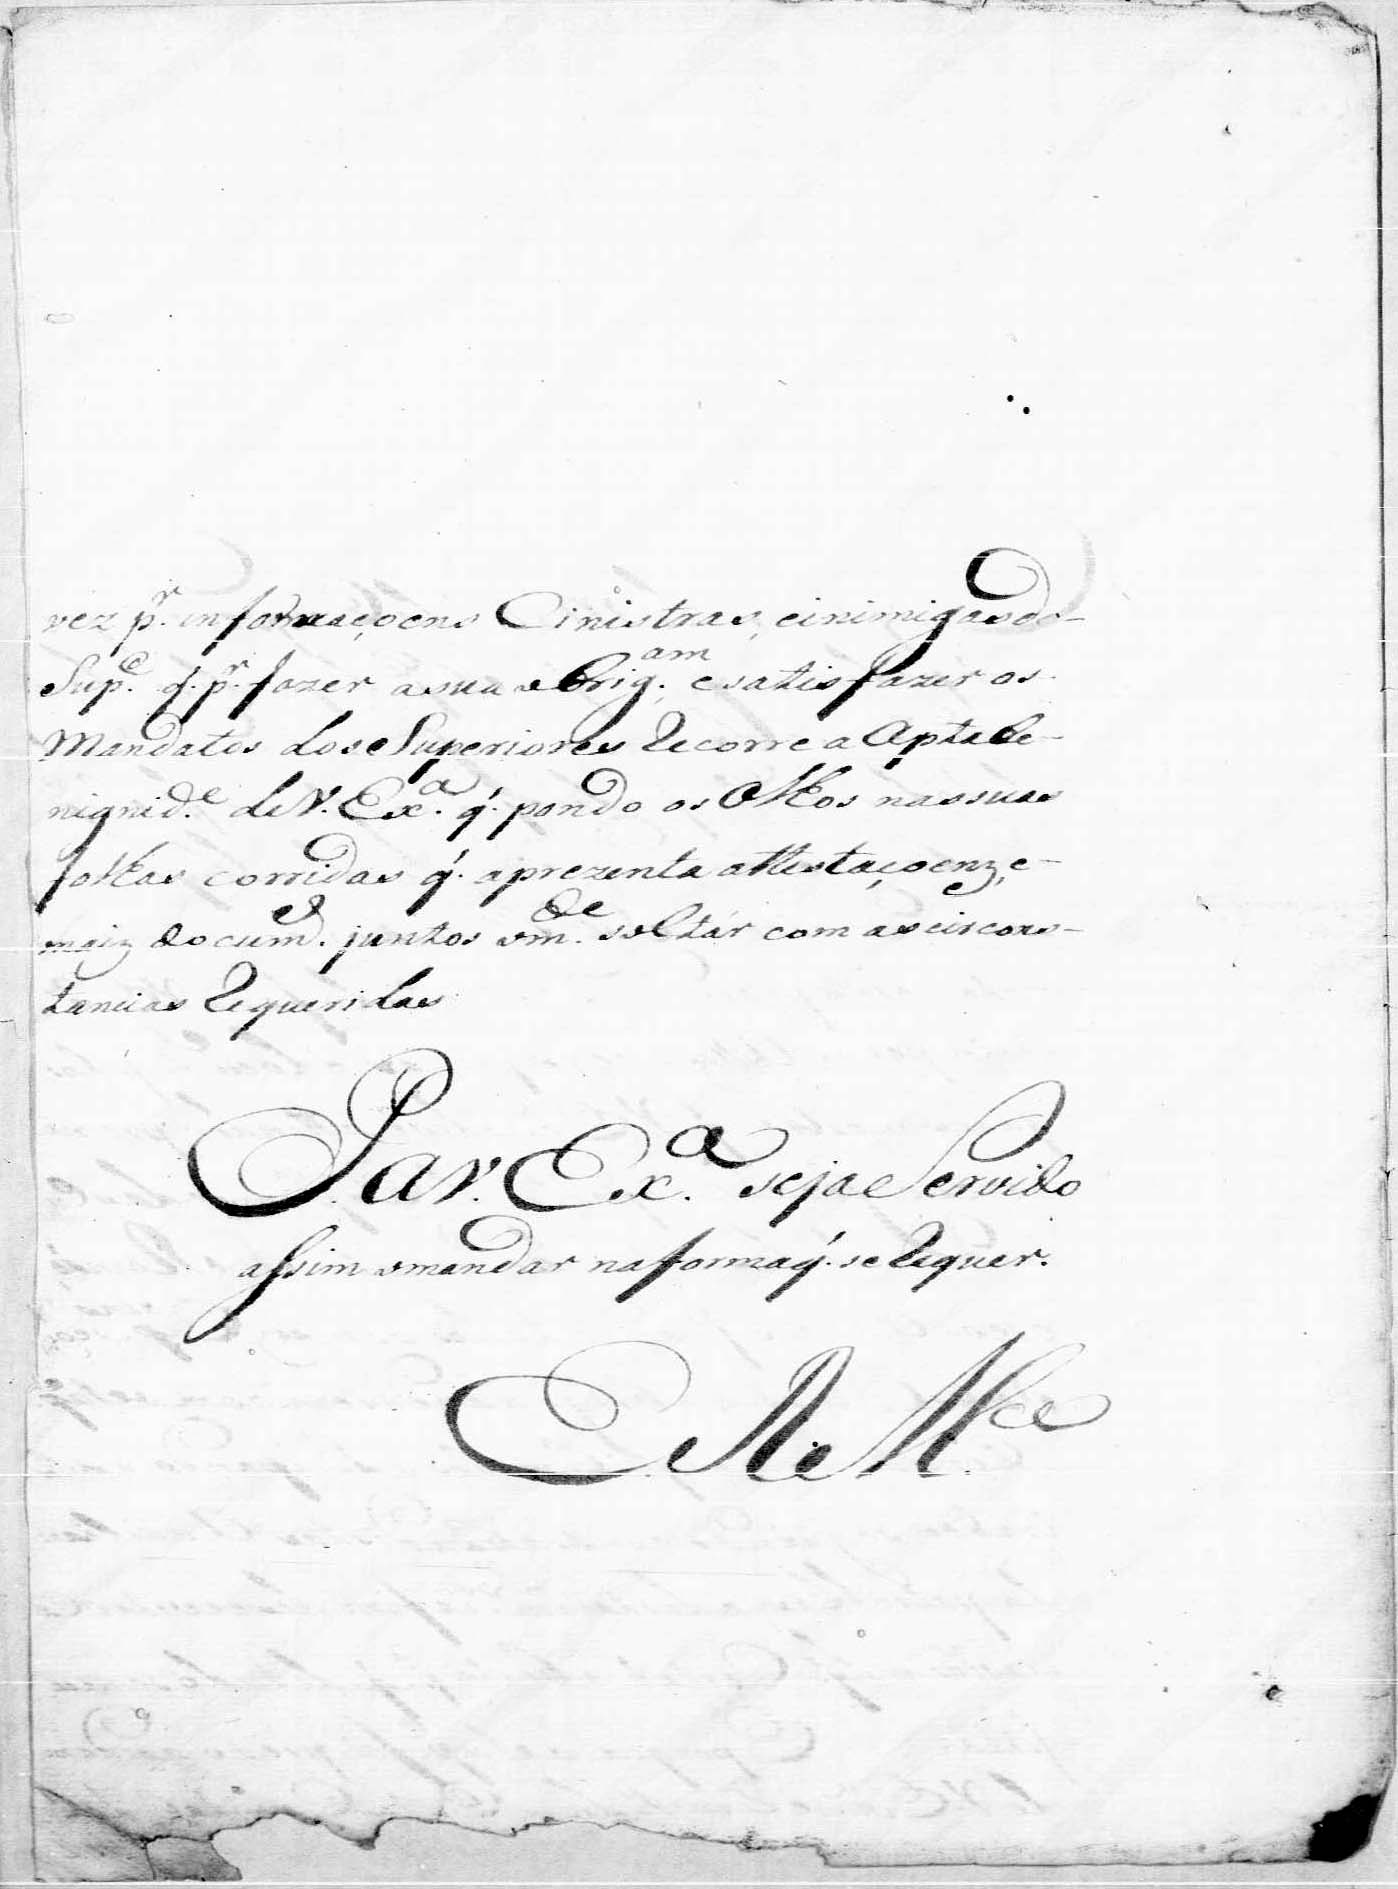 vez pr. informaçoens Cinistras, einimigas do-
Supe. q. pr. fazer asua obrigam., esatisfazer os
Mandatos dos Superiores Recorre a Apta Be-
nignide. de V. Exa. q̃. pondo os Olhos nassuas
folhas corridas q̃. aprezenta attestaçoenz, e-
maiz documtos. juntos omde. soltár com as circons-
tancias Requeridas
P. a V. Exa. seja Servido
assim omandar naforma q̃. se Requer.
E R. Mce